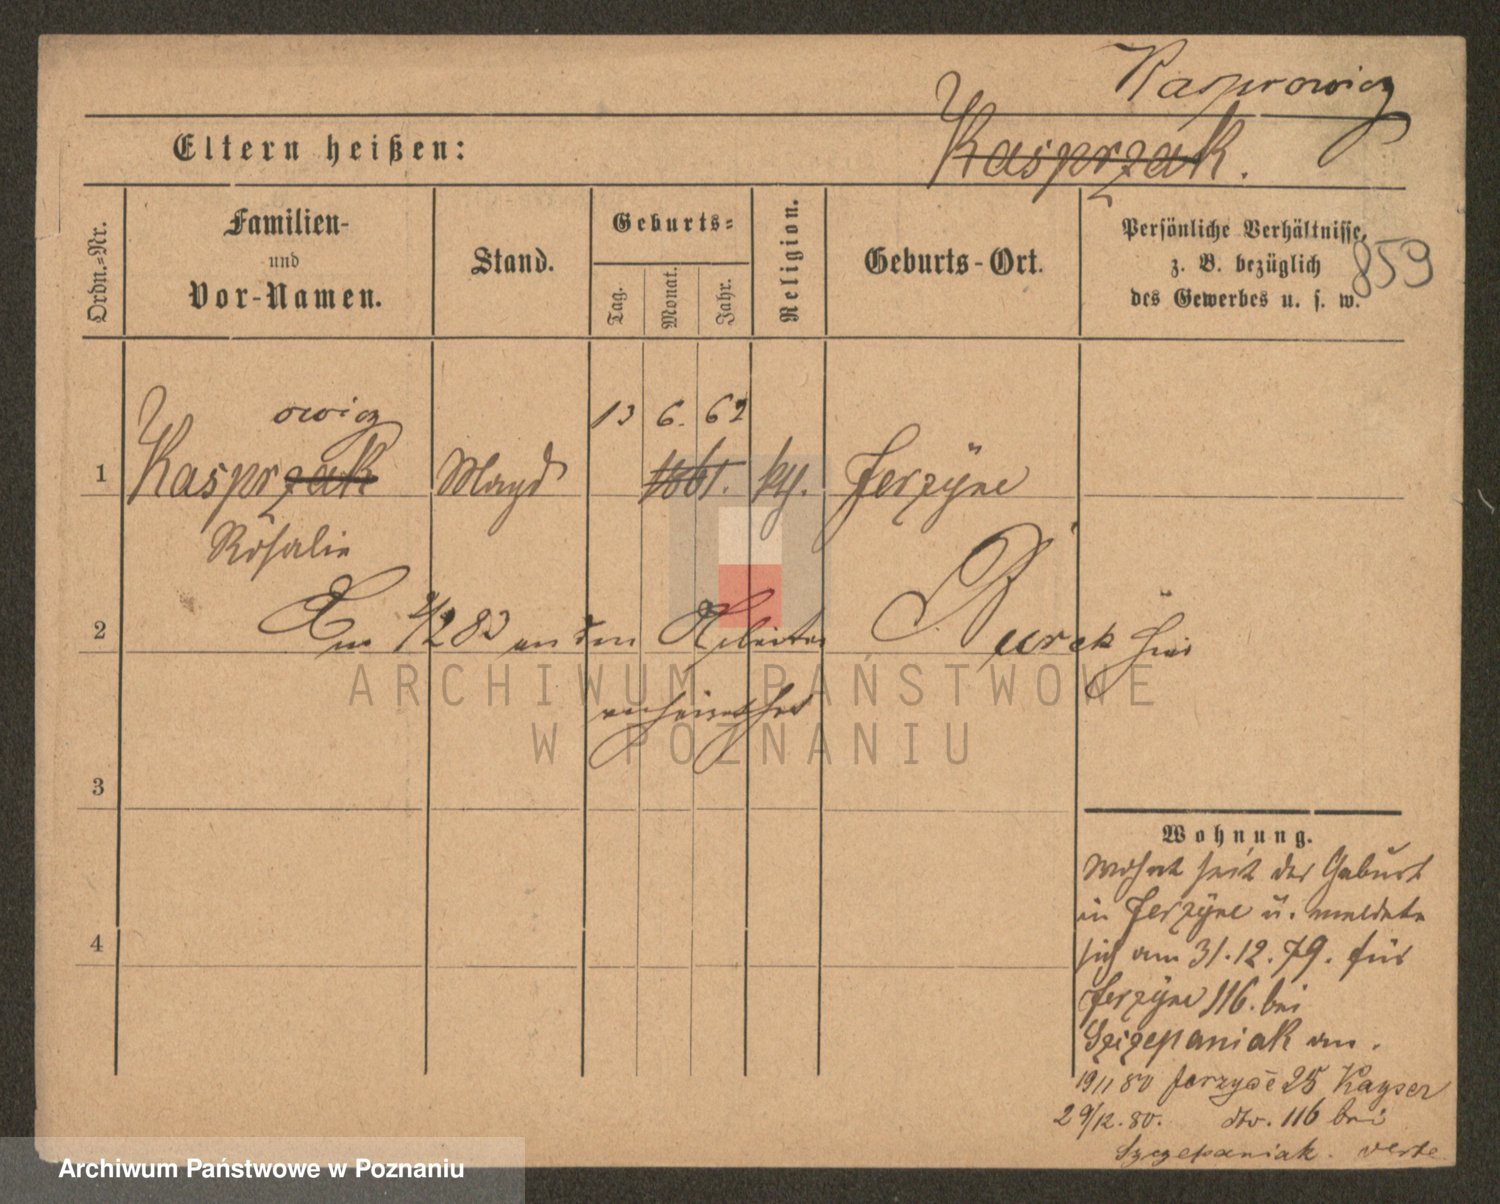 Kasprowicz
Eltern heißen: Kasprzak.
Ordn.=Nr.
Familien- und Vor-Namen.
Stand.
Geburts=
Tag.
Monat.
Jahr.
Religion.
Geburts-Ort.
Persönliche Verhältnisse,
z. B. bezüglich
des Gewerbes u. s. w.
859
owicz 13 6. 62
1 Kasprzak Magd 1861. kth. Jerzyce
Rosalie
2 Am 4/2 83 an den Arbeiter Burek hier
verheirathet
3
4
Wohnung.
Wohnt seit der Geburt
in Jerzyce u. meldete
sich am 31.12.79. für
Jerzyce 116. bei
Szczepaniak an.
19/11 80 Jerzyce 25 Kayser
29/12.80. dto. 116 bei
Szczepaniak. verte
ARCHIWUM PAŃSTWOWE
W POZNANIU
Archiwum Państwowe w Poznaniu